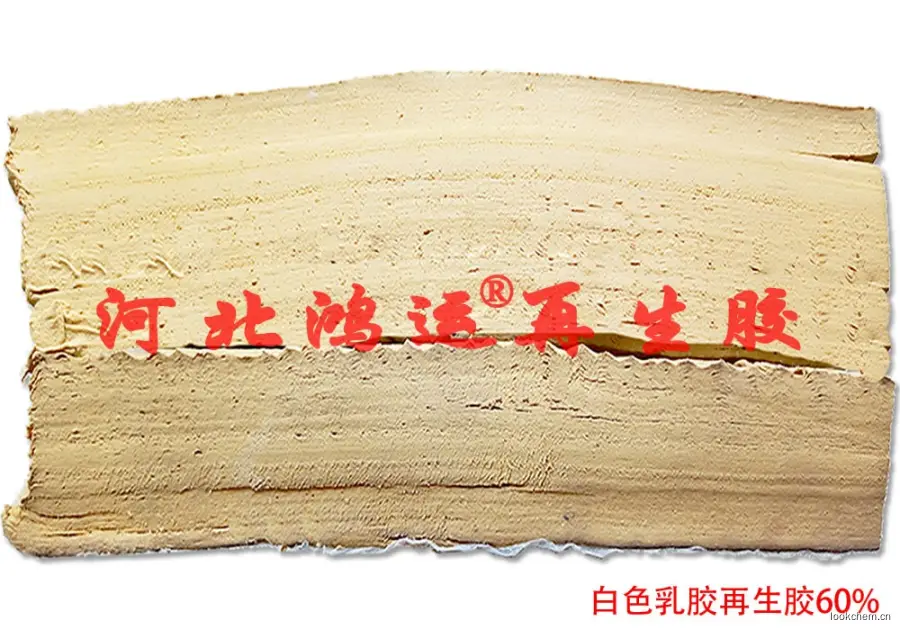 河北鸿运®再生胶
白色乳胶再生胶60%
lookchem.cn